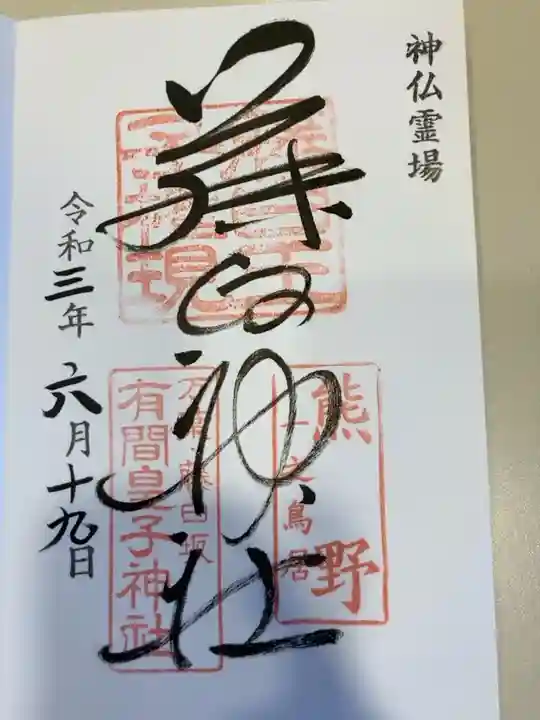 神仏霊場
藤白神社
熊野
一之鳥居
万葉・藤白坂
有間皇子神社
令和三年 六月十九日